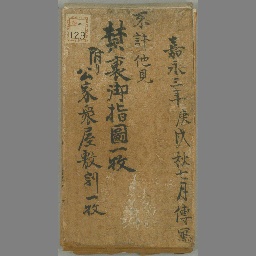 嘉永三年庚戌秋十一月傳寫
不許他見
禁裏御指圖一枚
附リ
公家衆屋敷割一枚
129